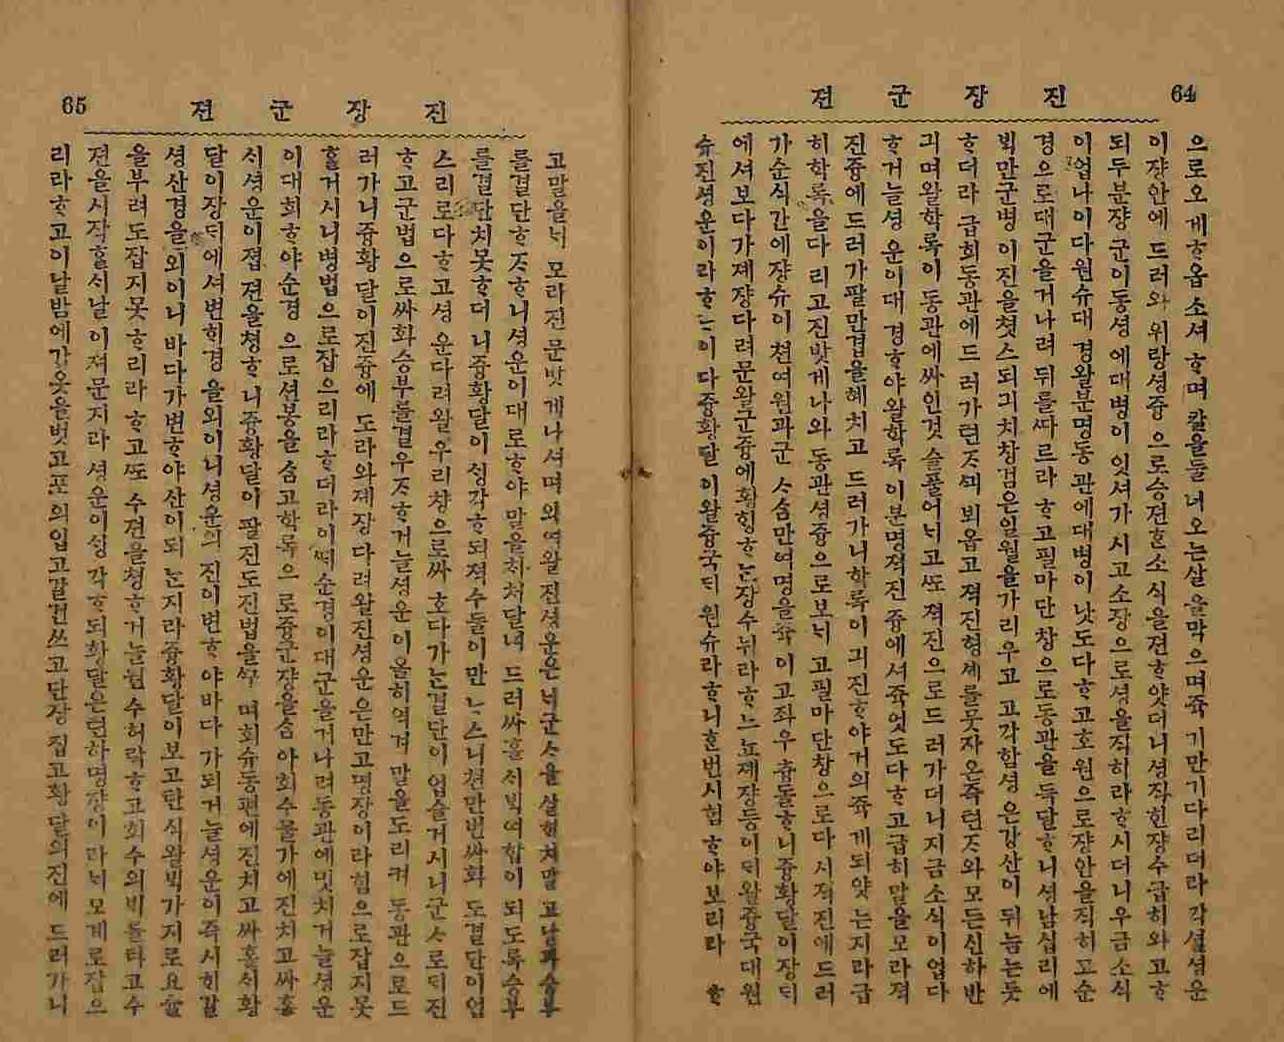 64
젼 군 장 진
으로오게ᄒᆞ옵소셔ᄒᆞ며칼을둘너오는살을막으며쥭기만기다리더라각셜셩운
이쟝안에드러와위왕셩즁으로승젼ᄒᆞᆫ소식을젼ᄒᆞ얏더니셩직힌쟝수급히와고ᄒᆞ
되두분쟝군이동셩에대병이잇셔가시고소쟝으로셩을직히라ᄒᆞ시더니우금소식
이업나이다원슈대경왈분명동관에대병이낫도다ᄒᆞ고호원으로쟝안을직히고순
경으로대군을거나려뒤를ᄯᅡ르라ᄒᆞ고필마단창으로동관을득달ᄒᆞ니셩남십리에
ᄇᆡᆨ만군병이진을쳣스되긔치창검은일월을가리우고고각함셩은강산이뒤눕는듯
ᄒᆞ더라급희동관에드러가련ᄌᆞᄭᅴ뵈옵고젹진형셰를뭇자온즉련ᄌᆞ와모든신하반
긔며왈학록이동관에싸인것슬풀어ᄂᆡ고ᄯᅩ젹진으로드러가더니지금소식이업다
ᄒᆞ거늘셩운이대경ᄒᆞ야왈학록이분명젹진즁에셔쥭엇도다ᄒᆞ고급히말을모라젹
진즁에드러가팔만겹을헤치고드러가니학록이긔진ᄒᆞ야거의쥭게되얏는지라급
히학록을다리고진밧게나와동관셩즁으로보ᄂᆡ고필마단창으로다시젹진에드러
가순식간에쟝슈이쳔여원과군ᄉᆞ숨만여명을쥭이고좌우츙돌ᄒᆞ니즁황달이장ᄃᆡ
에셔보다가졔쟝다려문왈군즁에횡ᄒᆡᆼᄒᆞ는장수뉘라ᄒᆞ느뇨졔쟝등이ᄃᆡ왈즁국대원
슈진셩운이라ᄒᆞᄂᆞ이다즁황달이왈즁국ᄃᆡ원슈라ᄒᆞ니ᄒᆞᆫ번시험ᄒᆞ야보리라ᄒᆞ
65
젼 군 장 진
고말을ᄂᆡ모라진문밧게나셔며외여왈진셩운은ᄂᆡ군ᄉᆞ을살ᄒᆡ치말고남과승부
를결단ᄒᆞᄌᆞᄒᆞ니셩운이대로ᄒᆞ야말을ᄎᆡ쳐달녀드러싸홀ᄉᆡᄇᆡᆨ여합이되도록승부
를결단치못ᄒᆞ더니즁황달이ᄉᆡᆼ각ᄒᆞ되젹수둘이만ᄂᆞ스니쳔만번싸화도결단이업
스리로다ᄒᆞ고셩운다려왈우리창으로싸호다가는결단이업슬거시니군ᄉᆞ로ᄃᆡ진
ᄒᆞ고군법으로싸화승부를결우ᄌᆞᄒᆞ거늘셩운이올히역겨말을도리켜동관으로드
러가니즁황달이진즁에도라와졔장다려왈진셩운은만고명장이라힘으로잡지못
ᄒᆞᆯ거시니병법으로잡으리라ᄒᆞ더라이ᄯᆡ순경이대군을거나려동관에밋치거늘셩운
이대희ᄒᆞ야순경으로션봉을숨고학록으로즁군장을숨아회수물가에진치고싸홈
ᄉᆡ셩운이졉젼을쳥ᄒᆞ니즁황달이팔진도진법을ᄭᅮ며회슈동편에진치고싸홀ᄉᆡ황
달이장ᄃᆡ에셔변ᄒᆡ경을외이니셩운의진이변ᄒᆞ야바다가되거늘셩운이즉시ᄒᆡ갈
셩산경을외이니바다가변ᄒᆞ야산이되는지라즁황달이보고탄식왈ᄇᆡᆨ가지로요슐
을부려도잡지못ᄒᆞ리라ᄒᆞ고ᄯᅩ수젼을쳥ᄒᆞ거늘원수허락ᄒᆞ고회수의ᄇᆡ를타고수
젼을시작ᄒᆞᆯᄉᆡ날이져문지라셩운이ᄉᆡᆼ각ᄒᆞ되황달은련하명쟝이라ᄂᆡ모계로잡으
리라ᄒᆞ고이날밤에갑옷을벗고포의입고갈건쓰고단장집고황달의진에드러가니